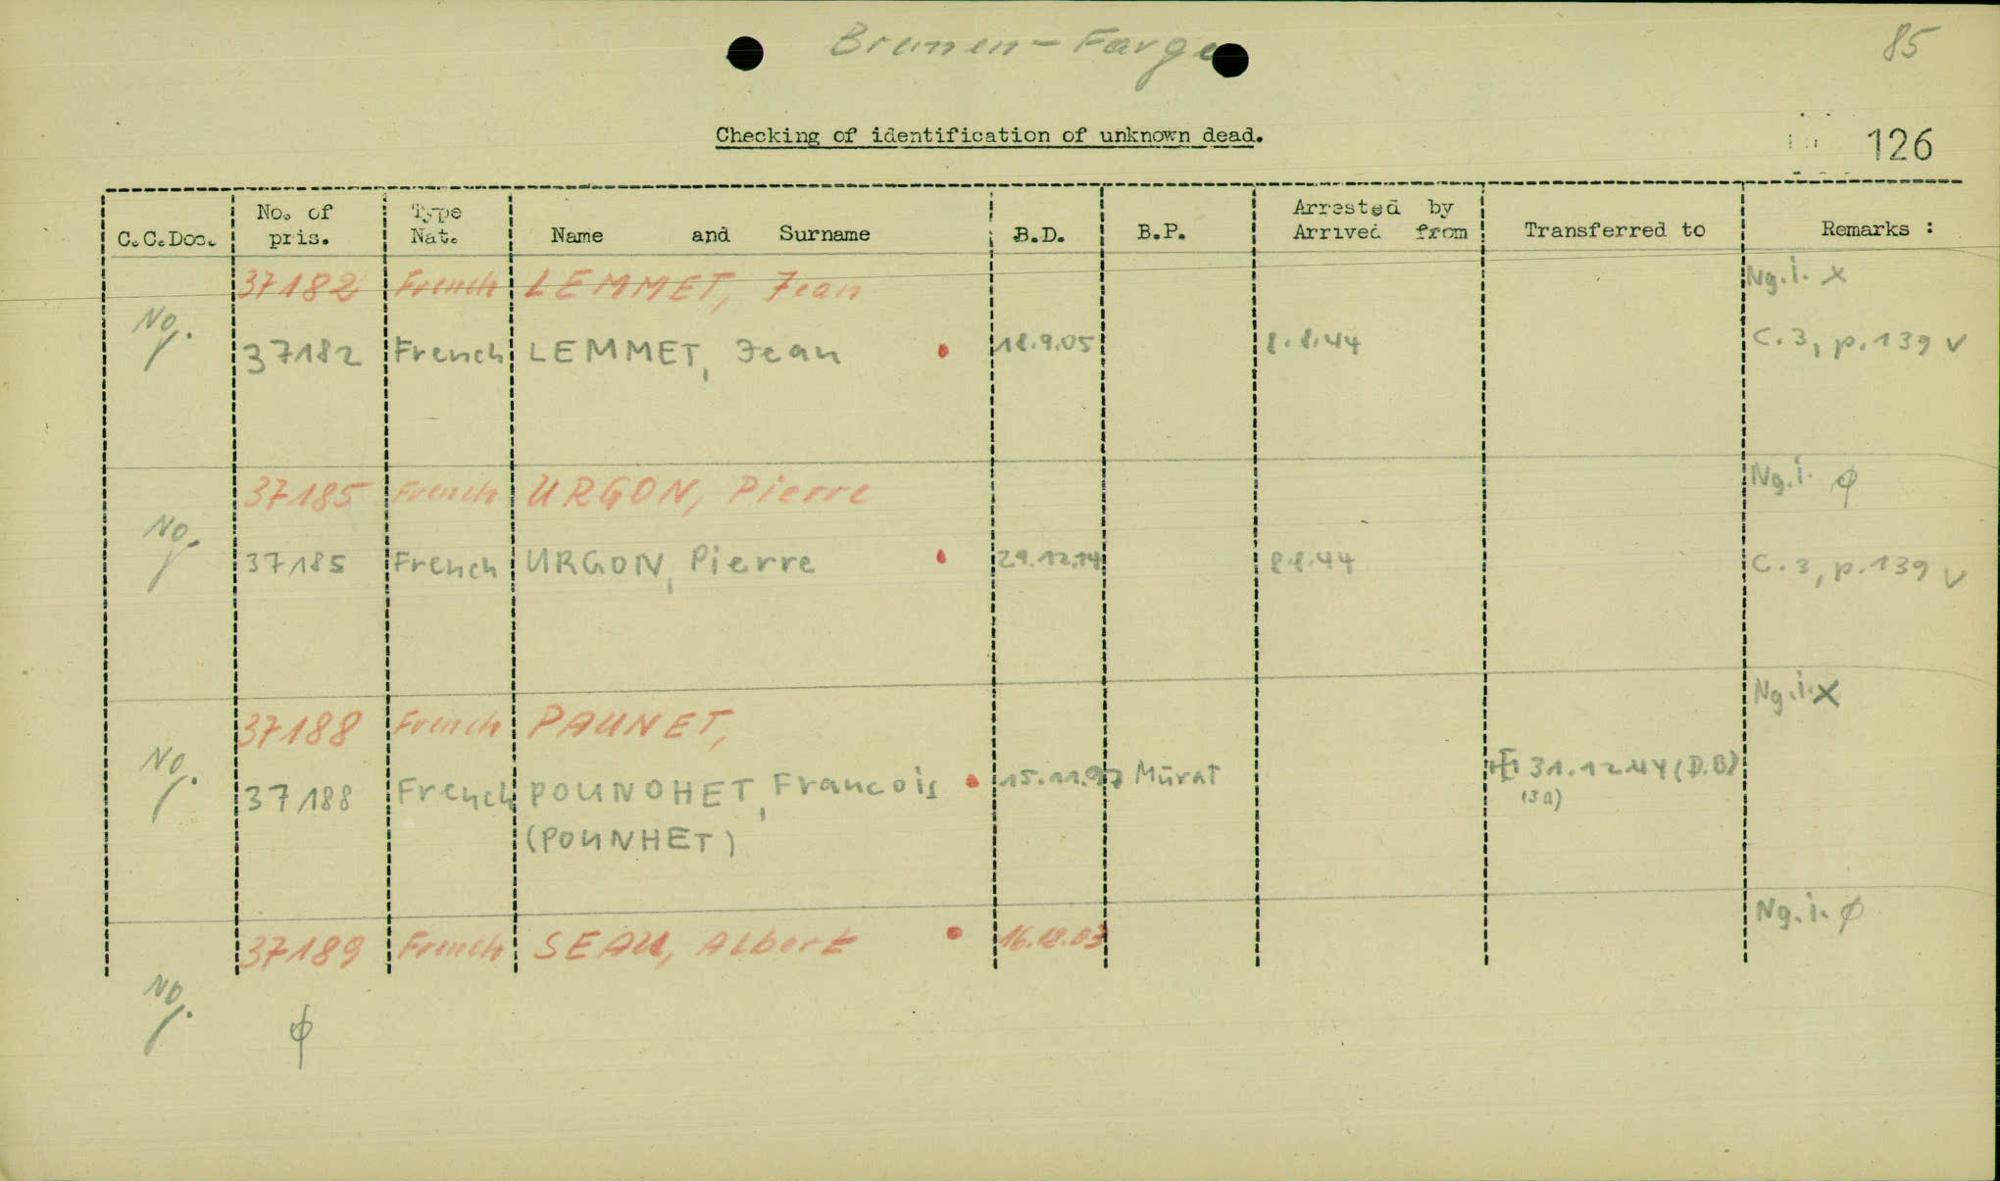 Bremen-Farge
85
Checking of identification of unknown dead.
126
C.C.Doc. No. of pris. Type Nat. Name and Surname B.D. B.P. Arrested by Arrived from Transferred to Remarks :
37182 French LEMMET, Jean Ng.i. x
No. 37182 French LEMMET, Jean • 18.9.05 8.8.44 C.3, p.139 v
37185 French URGON, Pierre Ng.i. φ
No. 37185 French URGON, Pierre • 29.12.14 8.8.44 C.3, p.139 v
37188 French PAUNET, Ng.i. x
No. 37188 French POUNOHET, Francois • 15.11.97 Mürat 31.12.44 (D.B)
(POUNHET) (3a)
37189 French SEAU, Albert • Ng.i. φ
No. φ